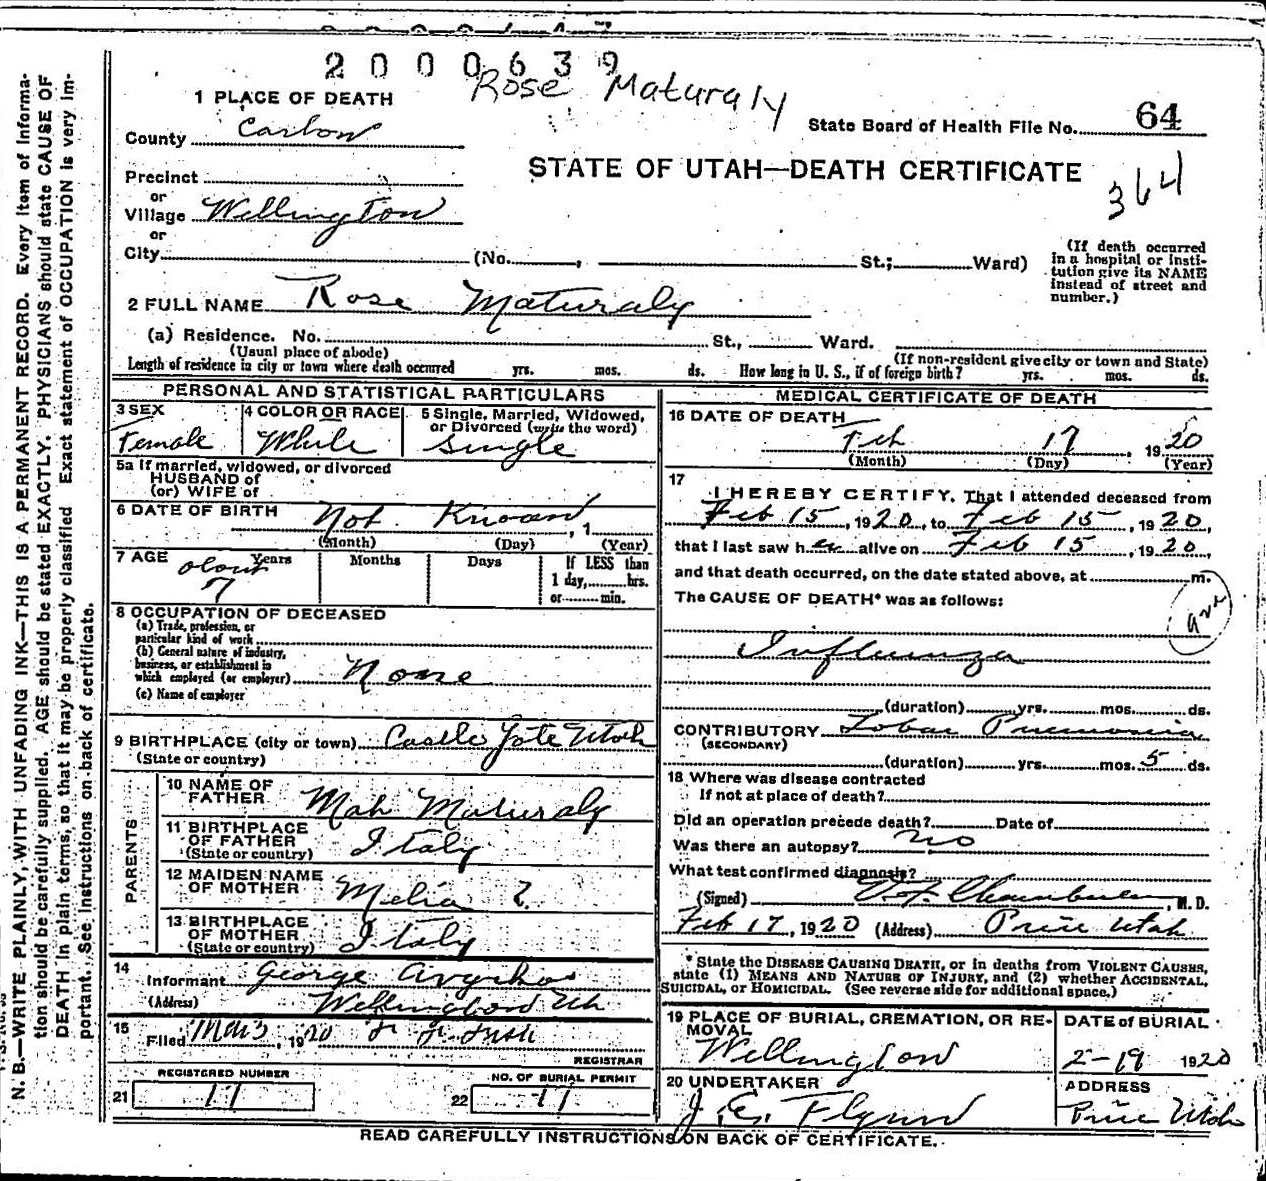 2000639
Rose Maturaly
1 PLACE OF DEATH
County Carbon
State Board of Health File No. 64
STATE OF UTAH—DEATH CERTIFICATE
364
Precinct
or
Village Wellington
or
City (No. , St.; Ward)
(If death occurred in a hospital or institution give its NAME instead of street and number.)
2 FULL NAME Rose Maturaly
(a) Residence. No. St., Ward.
(Usual place of abode) (If non-resident give city or town and State)
Length of residence in city or town where death occurred yrs. mos. ds. How long in U. S., if of foreign birth? yrs. mos. ds.
PERSONAL AND STATISTICAL PARTICULARS
3 SEX Female
4 COLOR OR RACE White
5 Single, Married, Widowed, or Divorced (write the word) Single
5a If married, widowed, or divorced
HUSBAND of
(or) WIFE of
6 DATE OF BIRTH Not Known, 1
(Month) (Day) (Year)
7 AGE about 7 Years Months Days If LESS than 1 day, hrs. or min.
8 OCCUPATION OF DECEASED
(a) Trade, profession, or
particular kind of work
(b) General nature of industry,
business, or establishment in
which employed (or employer) None
(c) Name of employer
9 BIRTHPLACE (city or town) Castle Gate Utah
(State or country)
PARENTS
10 NAME OF FATHER Maturaly
11 BIRTHPLACE OF FATHER Italy
(State or country)
12 MAIDEN NAME OF MOTHER Melia ?
13 BIRTHPLACE OF MOTHER Italy
(State or country)
14
Informant George
(Address) Wellington Ut
15
Filed Mar 3, 1920
REGISTRAR
REGISTERED NUMBER
21 17
NO. OF BURIAL PERMIT
22 17
MEDICAL CERTIFICATE OF DEATH
16 DATE OF DEATH
Feb 17, 1920
(Month) (Day) (Year)
17
I HEREBY CERTIFY, That I attended deceased from
Feb 15, 1920, to Feb 15, 1920,
that I last saw her alive on Feb 15, 1920,
and that death occurred, on the date stated above, at m.
The CAUSE OF DEATH* was as follows:
Influenza
(duration) yrs. mos. ds.
CONTRIBUTORY Lobar Pneumonia
(SECONDARY)
(duration) yrs. mos. 5 ds.
18 Where was disease contracted
If not at place of death?
Did an operation precede death? Date of
Was there an autopsy? no
What test confirmed diagnosis?
(Signed) , M. D.
Feb 17, 1920 (Address) Price Utah
*State the DISEASE CAUSING DEATH, or in deaths from VIOLENT CAUSES,
state (1) MEANS AND NATURE OF INJURY, and (2) whether ACCIDENTAL,
SUICIDAL, OR HOMICIDAL. (See reverse side for additional space.)
19 PLACE OF BURIAL, CREMATION, OR REMOVAL
Wellington
DATE of BURIAL
2-19 1920
20 UNDERTAKER
J. E. Flynn
ADDRESS
Price Utah
READ CAREFULLY INSTRUCTIONS ON BACK OF CERTIFICATE.
N. B.—WRITE PLAINLY, WITH UNFADING INK—THIS IS A PERMANENT RECORD. Every item of informa-
tion should be carefully supplied. AGE should be stated EXACTLY. PHYSICIANS should state CAUSE OF
DEATH in plain terms, so that it may be properly classified. Exact statement of OCCUPATION is very im-
portant. See instructions on back of certificate.